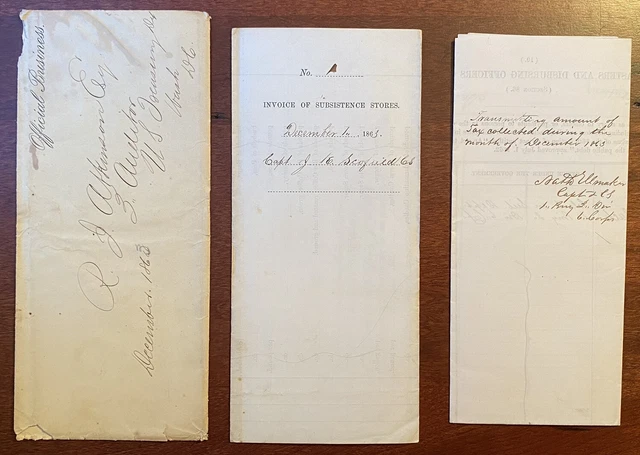 Official Business.
R. J. Atkinson Esq
3. Auditor
U S Treasury Dpt
Wash D.C.
December. 1863
No. A
INVOICE OF SUBSISTENCE STORES.
December 1. 1863.
Capt. J. C. Scofield CS
Transmitting amount of
Tax collected during the
month of December 1863
Capt & CS
1. Brig 2. Div
6. Corps